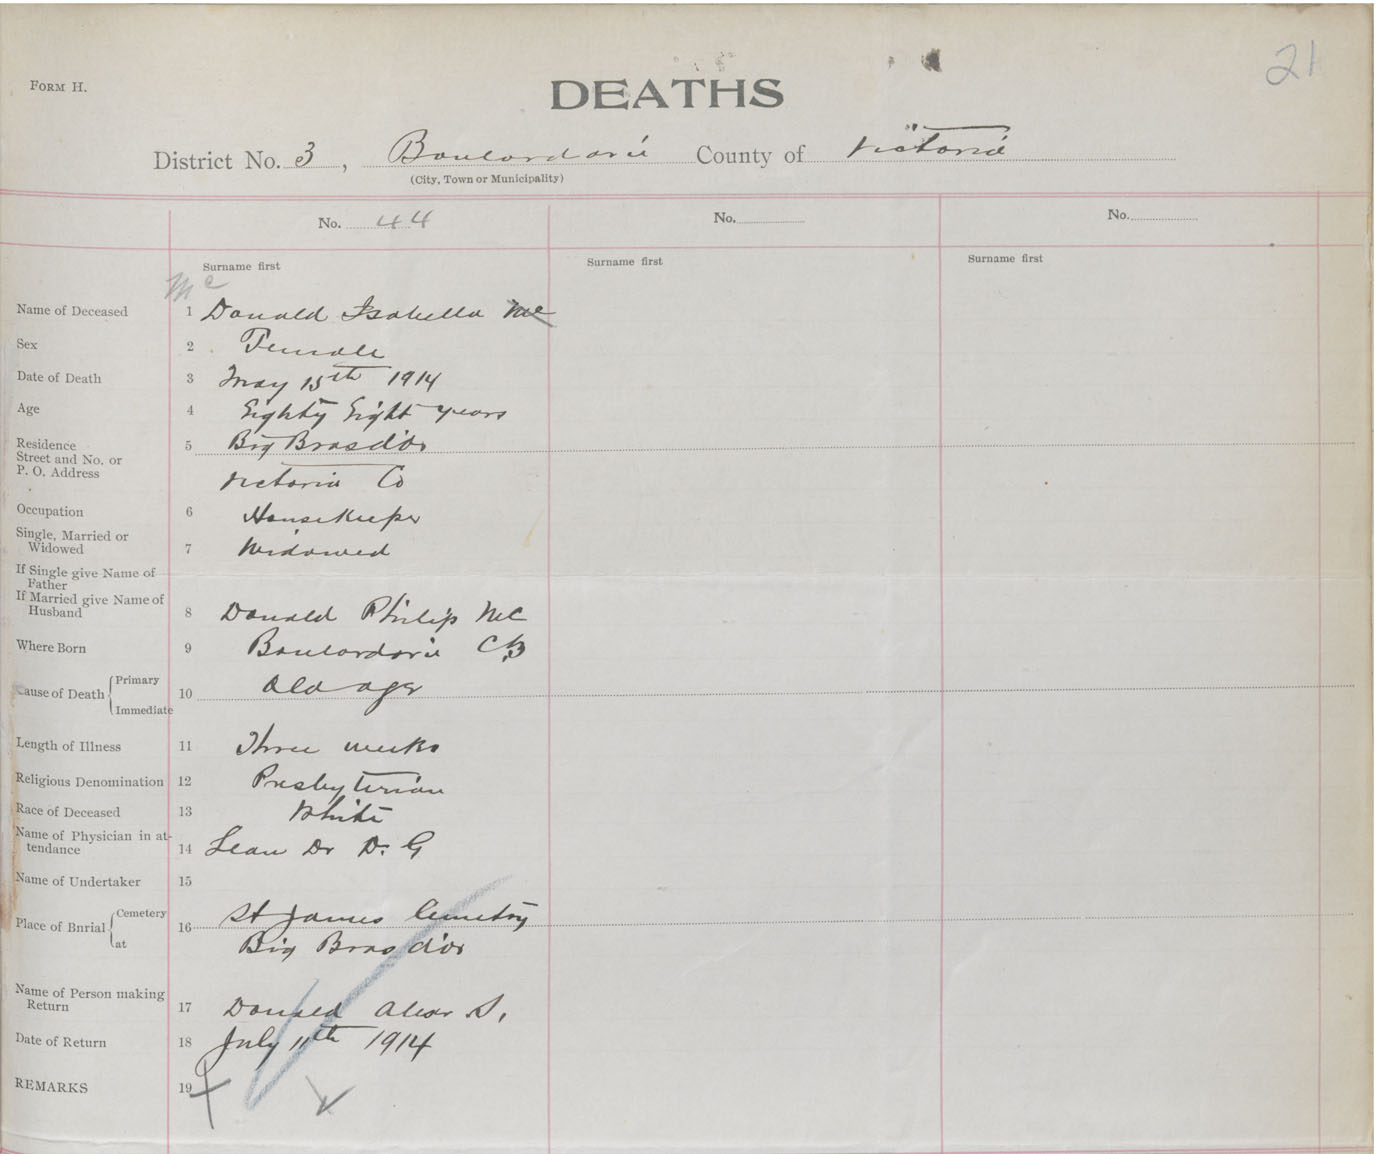 21
FORM H.
DEATHS
District No. 3, Boulardarie County of Victoria
(City, Town or Municipality)
No. 44 No. No.
Surname first Surname first Surname first
Mc
Name of Deceased 1 Donald Isabella Mc
Sex 2 Female
Date of Death 3 May 15th 1914
Age 4 Eighty Eight years
Residence 5 Big Brasd'or
Street and No. or
P. O. Address Victoria Co
Occupation 6 Housekeeper
Single, Married or
Widowed 7 Widowed
If Single give Name of
Father
If Married give Name of
Husband 8 Donald Philip Mc
Where Born 9 Boulardarie C B
Cause of Death Primary 10 Old age
Immediate
Length of Illness 11 Three weeks
Religious Denomination 12 Presbyterian
Race of Deceased 13 White
Name of Physician in at-
tendance 14 Lean Dr D. G
Name of Undertaker 15
Place of Burial Cemetery 16 St James Cemetry
at Big Bras d'or
Name of Person making
Return 17 Donald S.
Date of Return 18 July 11th 1914
REMARKS 19